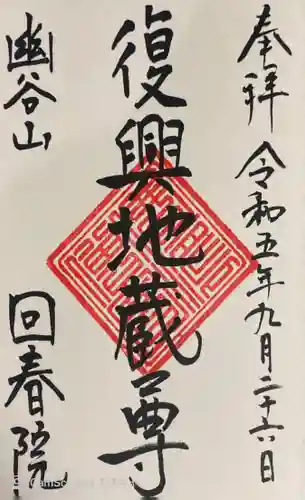 奉拝 令和五年九月二十六日
復興地蔵尊
幽谷山 回春院
CamScanner